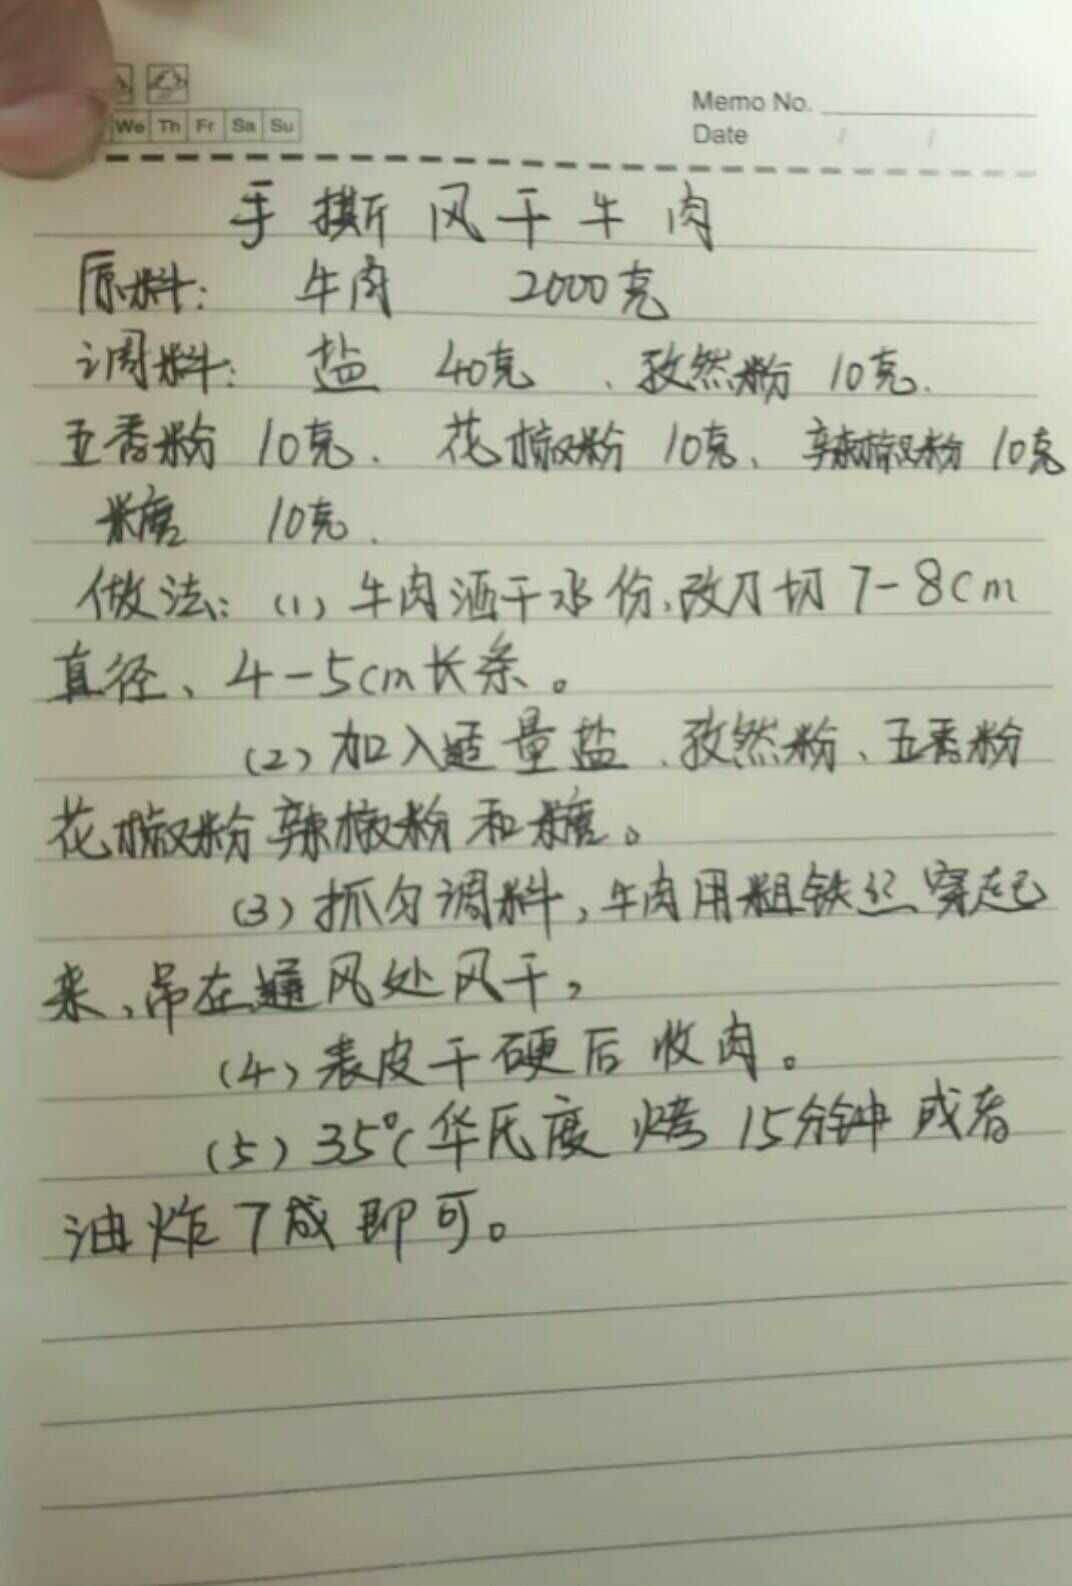 We Th Fr Sa Su
Memo No.
Date / /
手撕风干牛肉
原料: 牛肉 2000克
调料: 盐 40克、孜然粉 10克.
五香粉 10克. 花椒粉 10克、辣椒粉 10克
糖 10克.
做法: (1) 牛肉洒干水份,改刀切 7-8cm
直径、4-5cm长条。
(2) 加入适量盐、孜然粉、五香粉
花椒粉 辣椒粉和糖。
(3) 抓匀调料,牛肉用粗铁丝穿起
来、吊在通风处风干,
(4) 表皮干硬后 收肉。
(5) 35℃华氏度 烤 15分钟 或者
油炸7成即可。